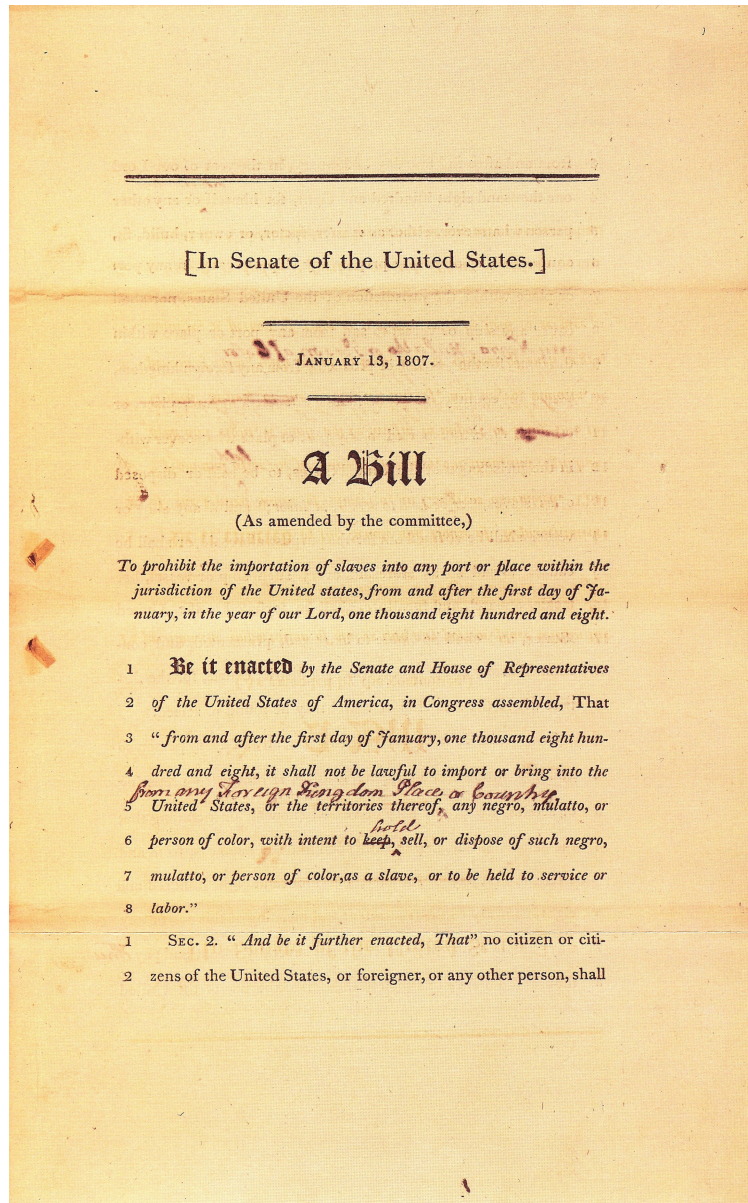 [In Senate of the United States.]
January 13, 1807.
A Bill
(As amended by the committee,)
To prohibit the importation of slaves into any port or place within the
jurisdiction of the United states, from and after the first day of Ja-
nuary, in the year of our Lord, one thousand eight hundred and eight.
1 Be it enacted by the Senate and House of Representatives
2 of the United States of America, in Congress assembled, That
3 "from and after the first day of January, one thousand eight hun-
4 dred and eight, it shall not be lawful to import or bring into the
from any Foreign Kingdom Place or Country
5 United States, or the territories thereof, any negro, mulatto, or
hold
6 person of color, with intent to keep, sell, or dispose of such negro,
7 mulatto, or person of color,as a slave, or to be held to service or
8 labor."
1 Sec. 2. " And be it further enacted, That" no citizen or citi-
2 zens of the United States, or foreigner, or any other person, shall